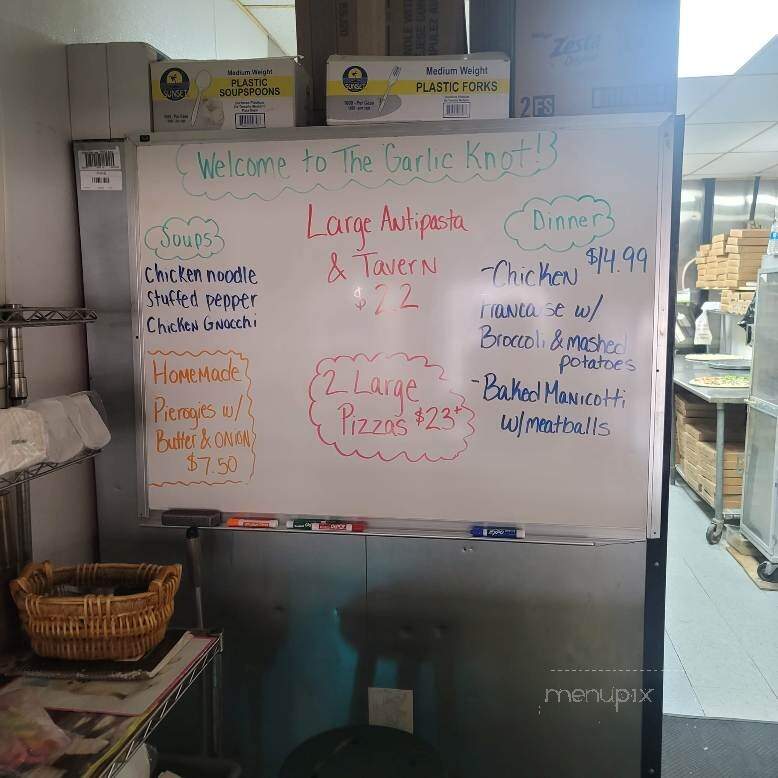 Medium Weight
PLASTIC
SOUPSPOONS
SUNSET
Medium Weight
PLASTIC FORKS
SUNSET
Zesta
2FS
Welcome to The Garlic Knot!
Soups
Chicken noodle
Stuffed pepper
Chicken Gnocchi
Homemade
Pierogies w/
Butter & ONION
$7.50
Large Antipasta
& Tavern
$22
2 Large
Pizzas $23+
Dinner
$14.99
-Chicken
Francaise w/
Broccoli & mashed
potatoes
-Baked Manicotti
w/meatballs
EXPO
menupix